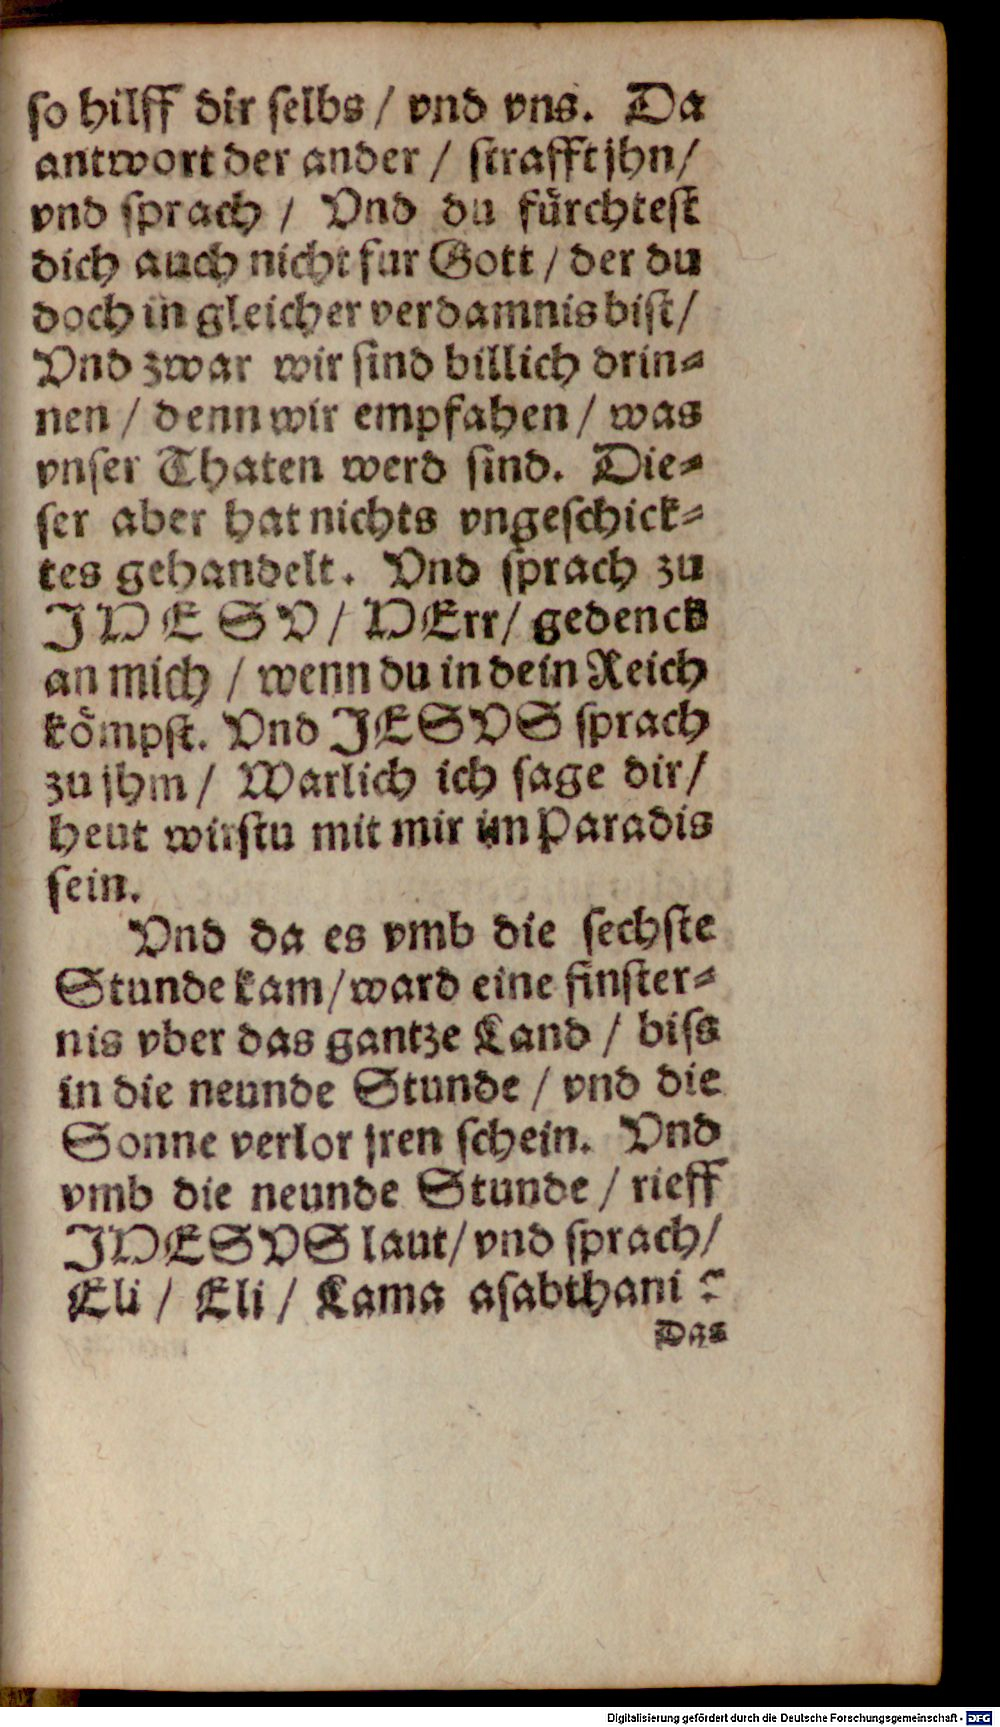 so hilff dir selbs / vnd vns. Da
antwort der ander / strafft jhn /
vnd sprach / Vnd du fürchtest
dich auch nicht fur Gott / der du
doch in gleicher verdamnis bist /
Vnd zwar wir sind billich drin⸗
nen / denn wir empfahen / was
vnser Thaten werd sind. Die⸗
ser aber hat nichts vngeschick⸗
tes gehandelt. Vnd sprach zu
JHESV / HErr / gedenck
an mich / wenn du in dein Reich
kömpst. Vnd JESVS sprach
zu jhm / Warlich ich sage dir /
heut wirstu mit mir im Paradis
sein.
Vnd da es vmb die sechste
Stunde kam / ward eine finster⸗
nis vber das gantze Land / biss
in die neunde Stunde / vnd die
Sonne verlor jren schein. Vnd
vmb die neunde Stunde / rieff
JHESVS laut / vnd sprach /
Eli / Eli / Lama asabthani ?
Das
Digitalisierung gefördert durch die Deutsche Forschungsgemeinschaft - DFG